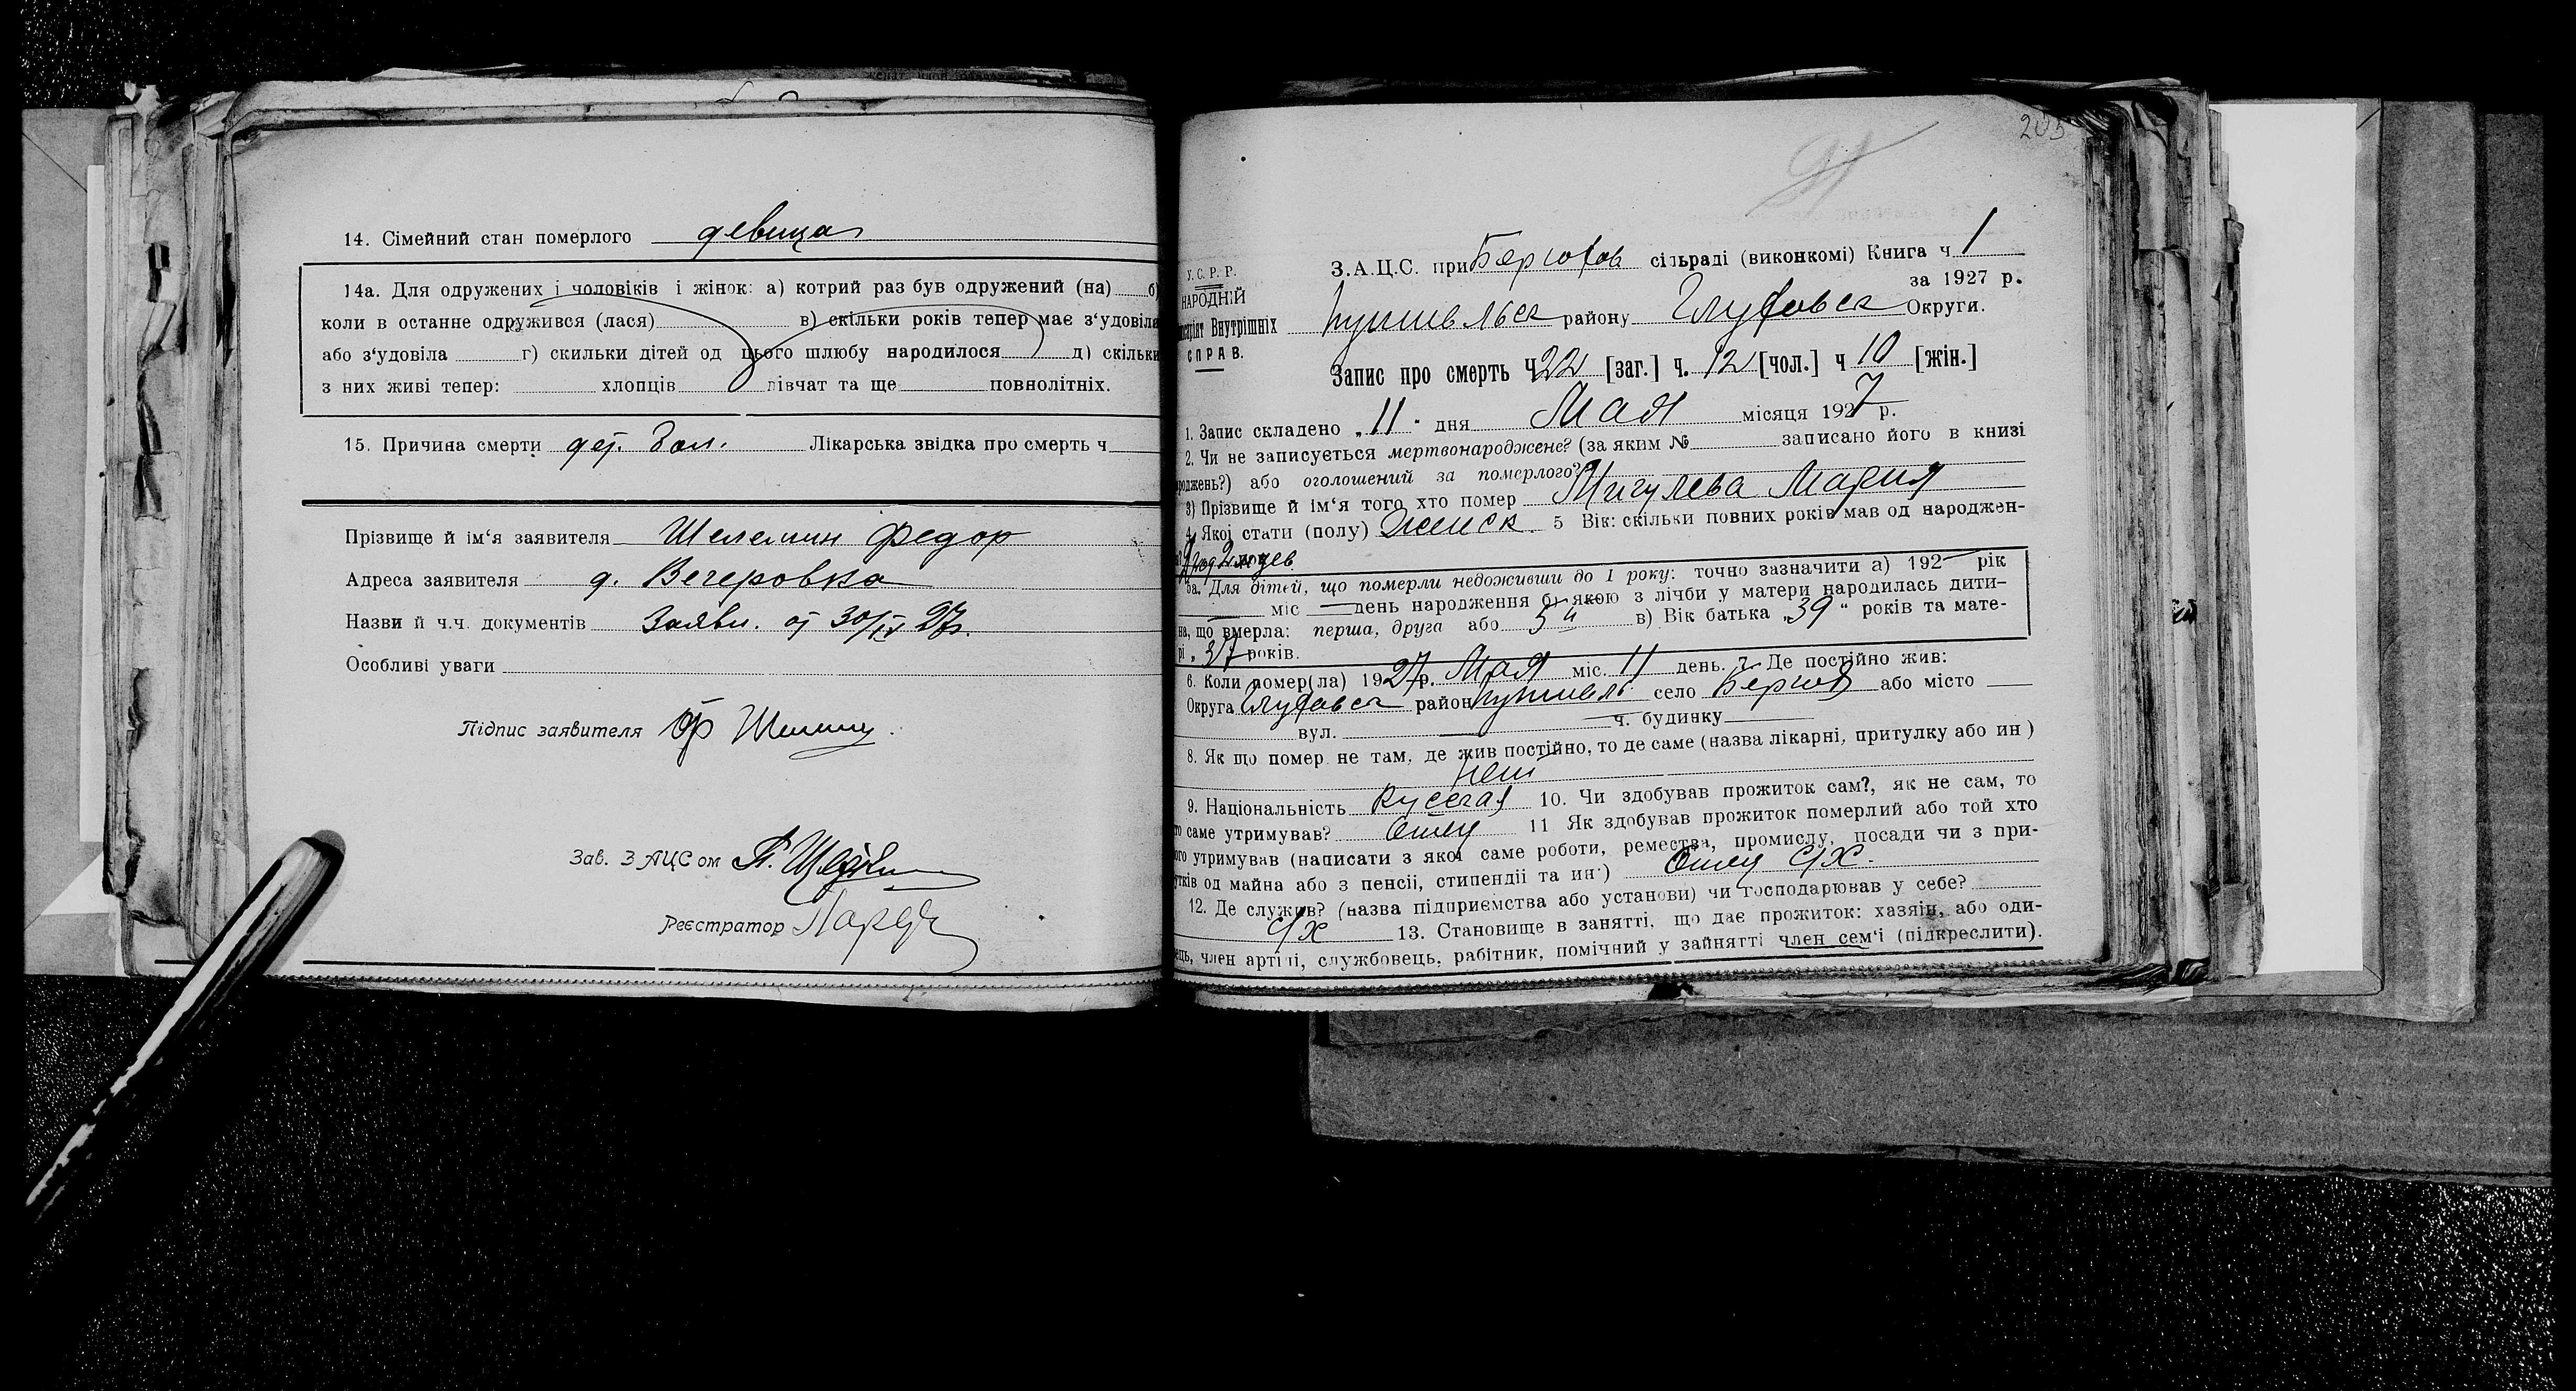 14. Сімейний стан померлого девица
14а. Для одружених і чоловіків і жінок: а) котрий раз був одружений (на) б)
коли в останне одружився (лася) в) скільки років тепер має з'удовіла
або з'удовіла г) скильки дітей од цього шлюбу народилося д) скільки
з них живі тепер: хлопців дівчат та ще повнолітніх.
15. Причина смерти дет. бол. Лікарська звідка про смерть ч
Прізвище й ім'я заявителя Шелемин Федор
Адреса заявителя д. Вечеровка
Назви й ч.ч. документів Заявл. от 30/IV 27г.
Особливі уваги
Підпис заявителя Ф
Зав. ЗАЦСом
Реєстратор
205
У.С.Р.Р.
НАРОДНІЙ
Внутрішніх
СПРАВ.
З.А.Ц.С. при Берюхов сільраді (виконкомі) Книга ч 1
за 1927 р.
Путивльск району Глуховск Округи.
Запис про смерть Ч 22 [заг.] ч. 12 [чол.] ч 10 [жін.]
1. Запис складено „11" дня Мая місяця 1927 р.
2. Чи не записується мертвонароджене? (за яким № записано його в книзі
роджень?) або оголошений за померлого?
3) Прізвище й ім'я того хто помер Мигулева Мария
4. Якої стати (полу) женск 5 Вік: скільки повних років мав од народжен-
2 месяцев
5а. Для дітей, що померли недоживши до 1 року: точно зазначити а) 192 рік
міс день народження б) якою з лічби у матери народилась дити-
на, що вмерла: перша, друга або 5й в) Вік батька „39" років та мате-
рі „37 років.
6. Коли помер(ла) 1927 р. Мая міс. 11 день. 7. Де постійно жив:
Округа Глуховск район Путивль село Берюх або місто
вул. ч. будинку
8. Як що помер не там, де жив постійно, то де саме (назва лікарні, притулку або ин)
нет
9. Національність Русская 10. Чи здобував прожиток сам?, як не сам, то
то саме утримував? Отец 11 Як здобував прожиток померлий або той хто
ого утримував (написати з якої саме роботи, ремества, промислу, посади чи з при-
утків од майна або з пенсії, стипендії та ин.) Отец С/Х.
12. Де служив? (назва підприємства або установи) чи господарював у себе?
С/Х 13. Становище в занятті, що дає прожиток: хазяін, або оди-
ець, член артілі, службовець, рабітник, помічний у зайнятті член сем'ї (підкреслити).